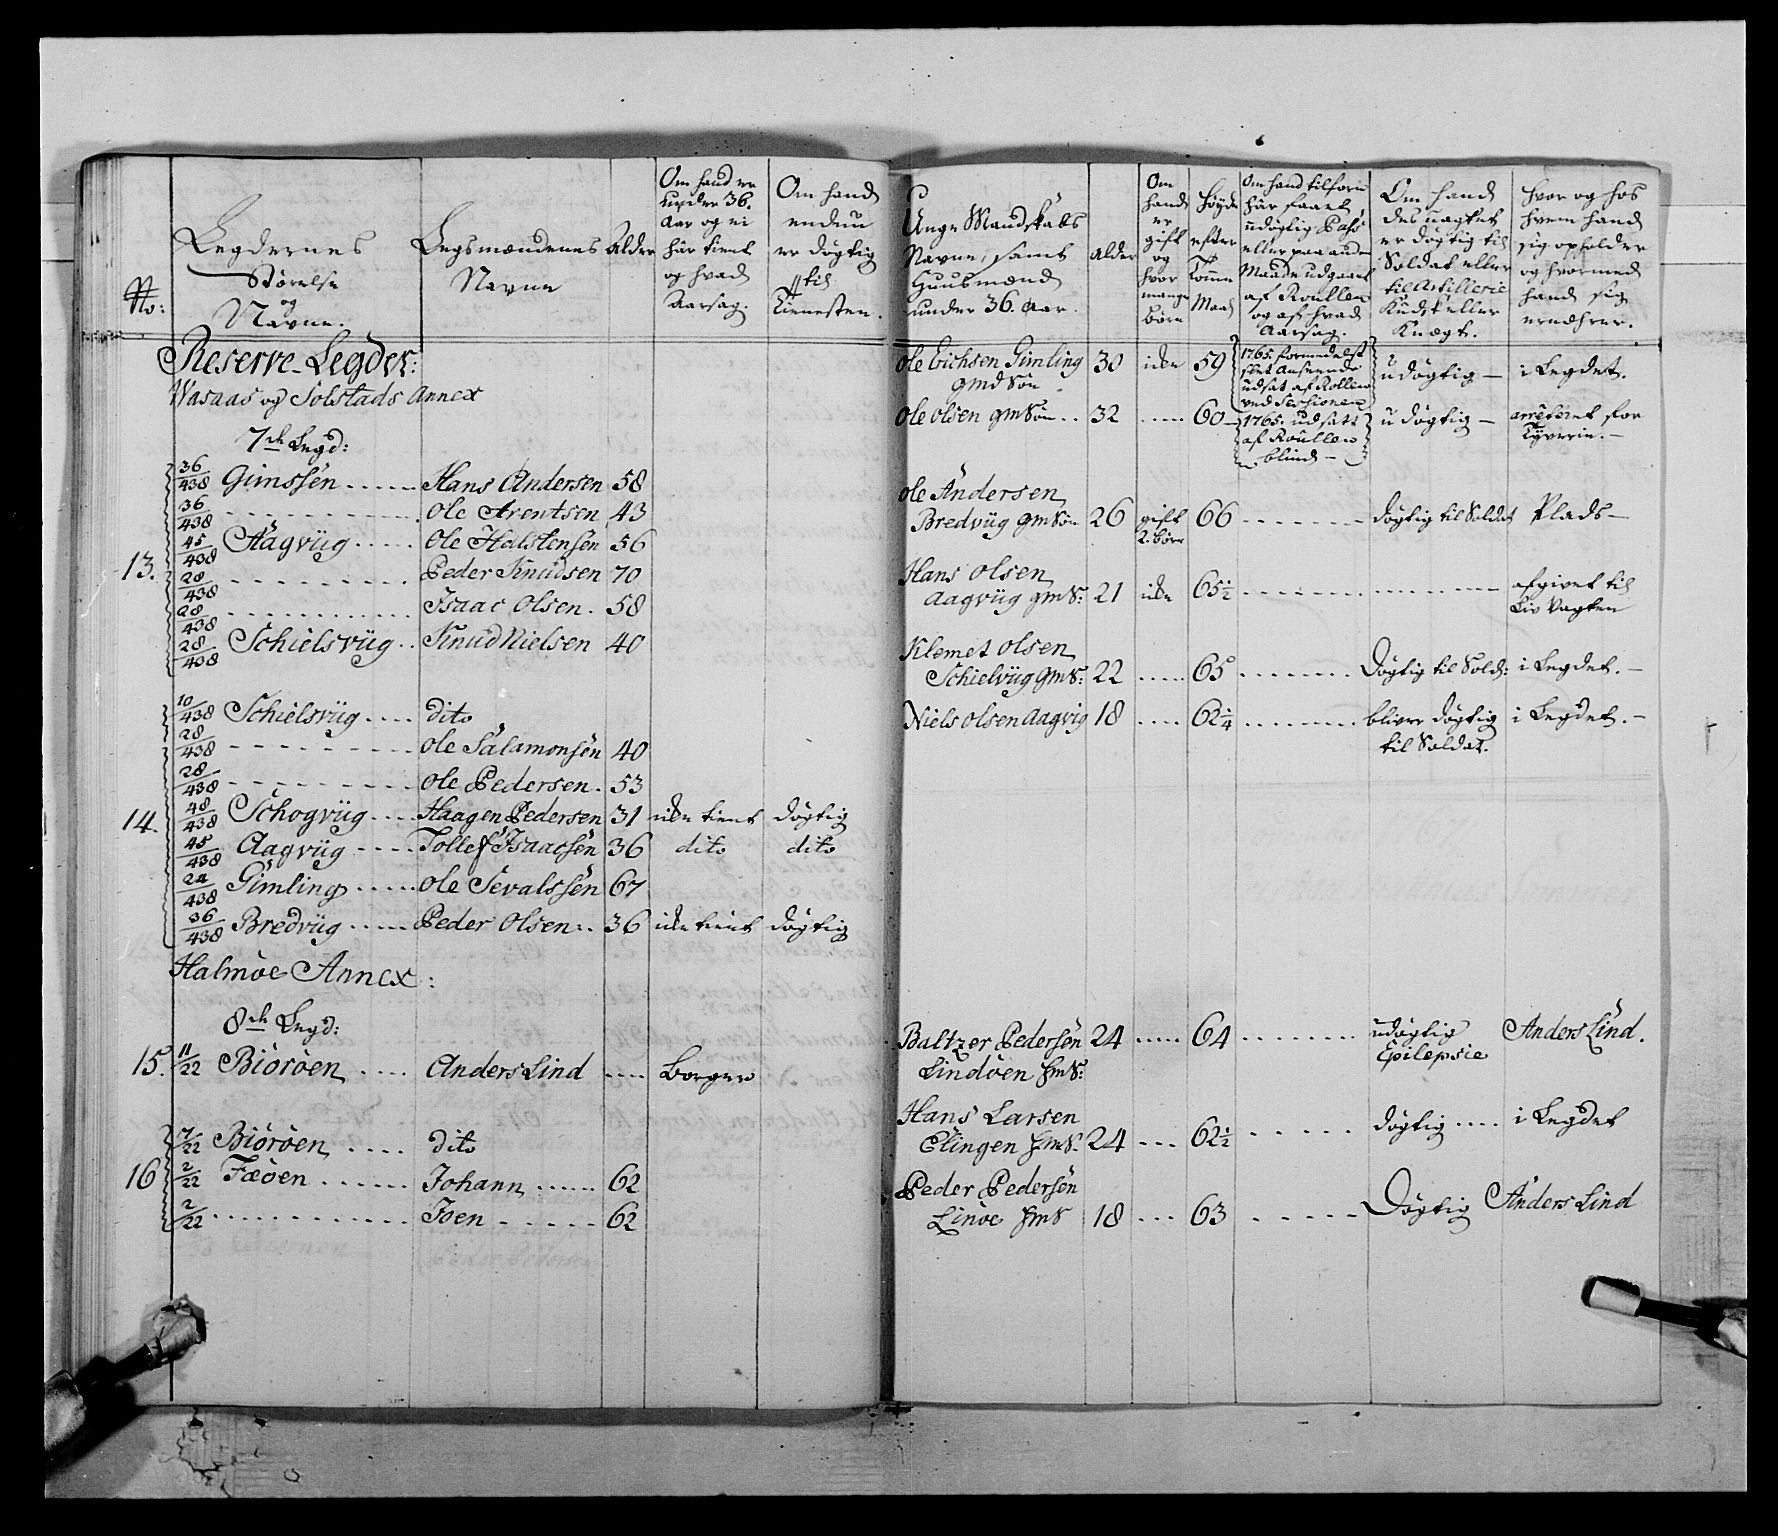 No:
Legdernes
Størelse
og
Navne.
Legsmændenes
Navne
Alder
Om hand er
under 36.
Aar og ei
hār tient
og hvad
Aarsag.
Om hand
endnu
er døgtig
til
Tienesten.
Reserve-Legder:
Wasaas og Solstads Annex
7de Legd:
13.
36/438 Gimssën ...... Hans Andersen 58
36/438 ...... Ole Arentsen 43
45/438 Aagvüg ..... Ole Halstensën 56
28/438 ...... Peder Knudsen 70
28/438 ...... Isaac Olsen. 58
28/438 Schielsvüg .. Knud Nielsen 40
14.
10/438 Schielsvüg .... dito
28/438 ...... Ole Salamonsën 40
28/438 ...... Ole Pedersen. 53
48/438 Schogvüg .... Haagen Pedersen 31 ikke tient døgtig
45/438 Aagvüg .... Tollef Isaacsën 36 dito dito
24/438 Gimling ..... Ole Sevalssën 67
36/438 Bredvüg ..... Peder Olsen .. 36 ikke tient døgtig
Halmöe Annex:
8de Legd:
15. 11/22 Biöröen .... Anders Lind .... Borger
16
7/22 Biöröen .... dito
2/22 Fæöen ...... Johann ...... 62
2/22 ............ Joen ...... 62
Unge Mandskabs
Navne, samt
Huusmænd
under 36. Aar.
Alder
Om
hand
er
gift
og
hvor
mange
børn
Høyde
efter
Tomme
Maal
Om hand tilforn
hār faaet
udøgtig Pass
eller paa anden
Maade udgaaet
af Roullen
og af hvad
Aarsag.
Om hand
des uagtet
er døgtig til
Soldat eller
til Artillerie
Kudsk eller
Knægt.
hvor og hos
hvem hand
sig opholder
og hvormed
hand sig
ernæhrer.
Ole Erichsen Gimling 30 ikke 59 1765. formedelst udøgtig — i Legdet.
gmd Søn slet Anseende
udsat af Rollen
ved Sessionen
Ole Olsen gmSøn .. 32 ..... 60 1765. udsatt udøgtig — arrèteret for
af Roullen Tyverie. —
blind —
Ole Andersen
Bredvüg gmSøn 26 gift 66 ....... døgtig til Soldat Plads —
2. børn
Hans Olsen
Aagvüg gmS: 21 ikke 65½ ....... ....... afgivet til
Liv Vagten
Klemet Olsen
Schielvüg gmS: 22 ..... 65 ....... Døgtig til Sold: i Legdet. —
Niels Olsen Aagvig 18 .... 62¼ ....... bliver døgtig i Legdet. —
til Soldat.
Baltzer Pedersën 24 ..... 64 ....... udøgtig Anders Lind.
Lindöen hmS: Epilepsie
Hans Larsen
Elingen hmS. 24 ... 62½ ..... døgtig .... i Legdet
Peder Pedersën
Linöe hmS 18 ... 63 ..... Døgtig Anders Lind